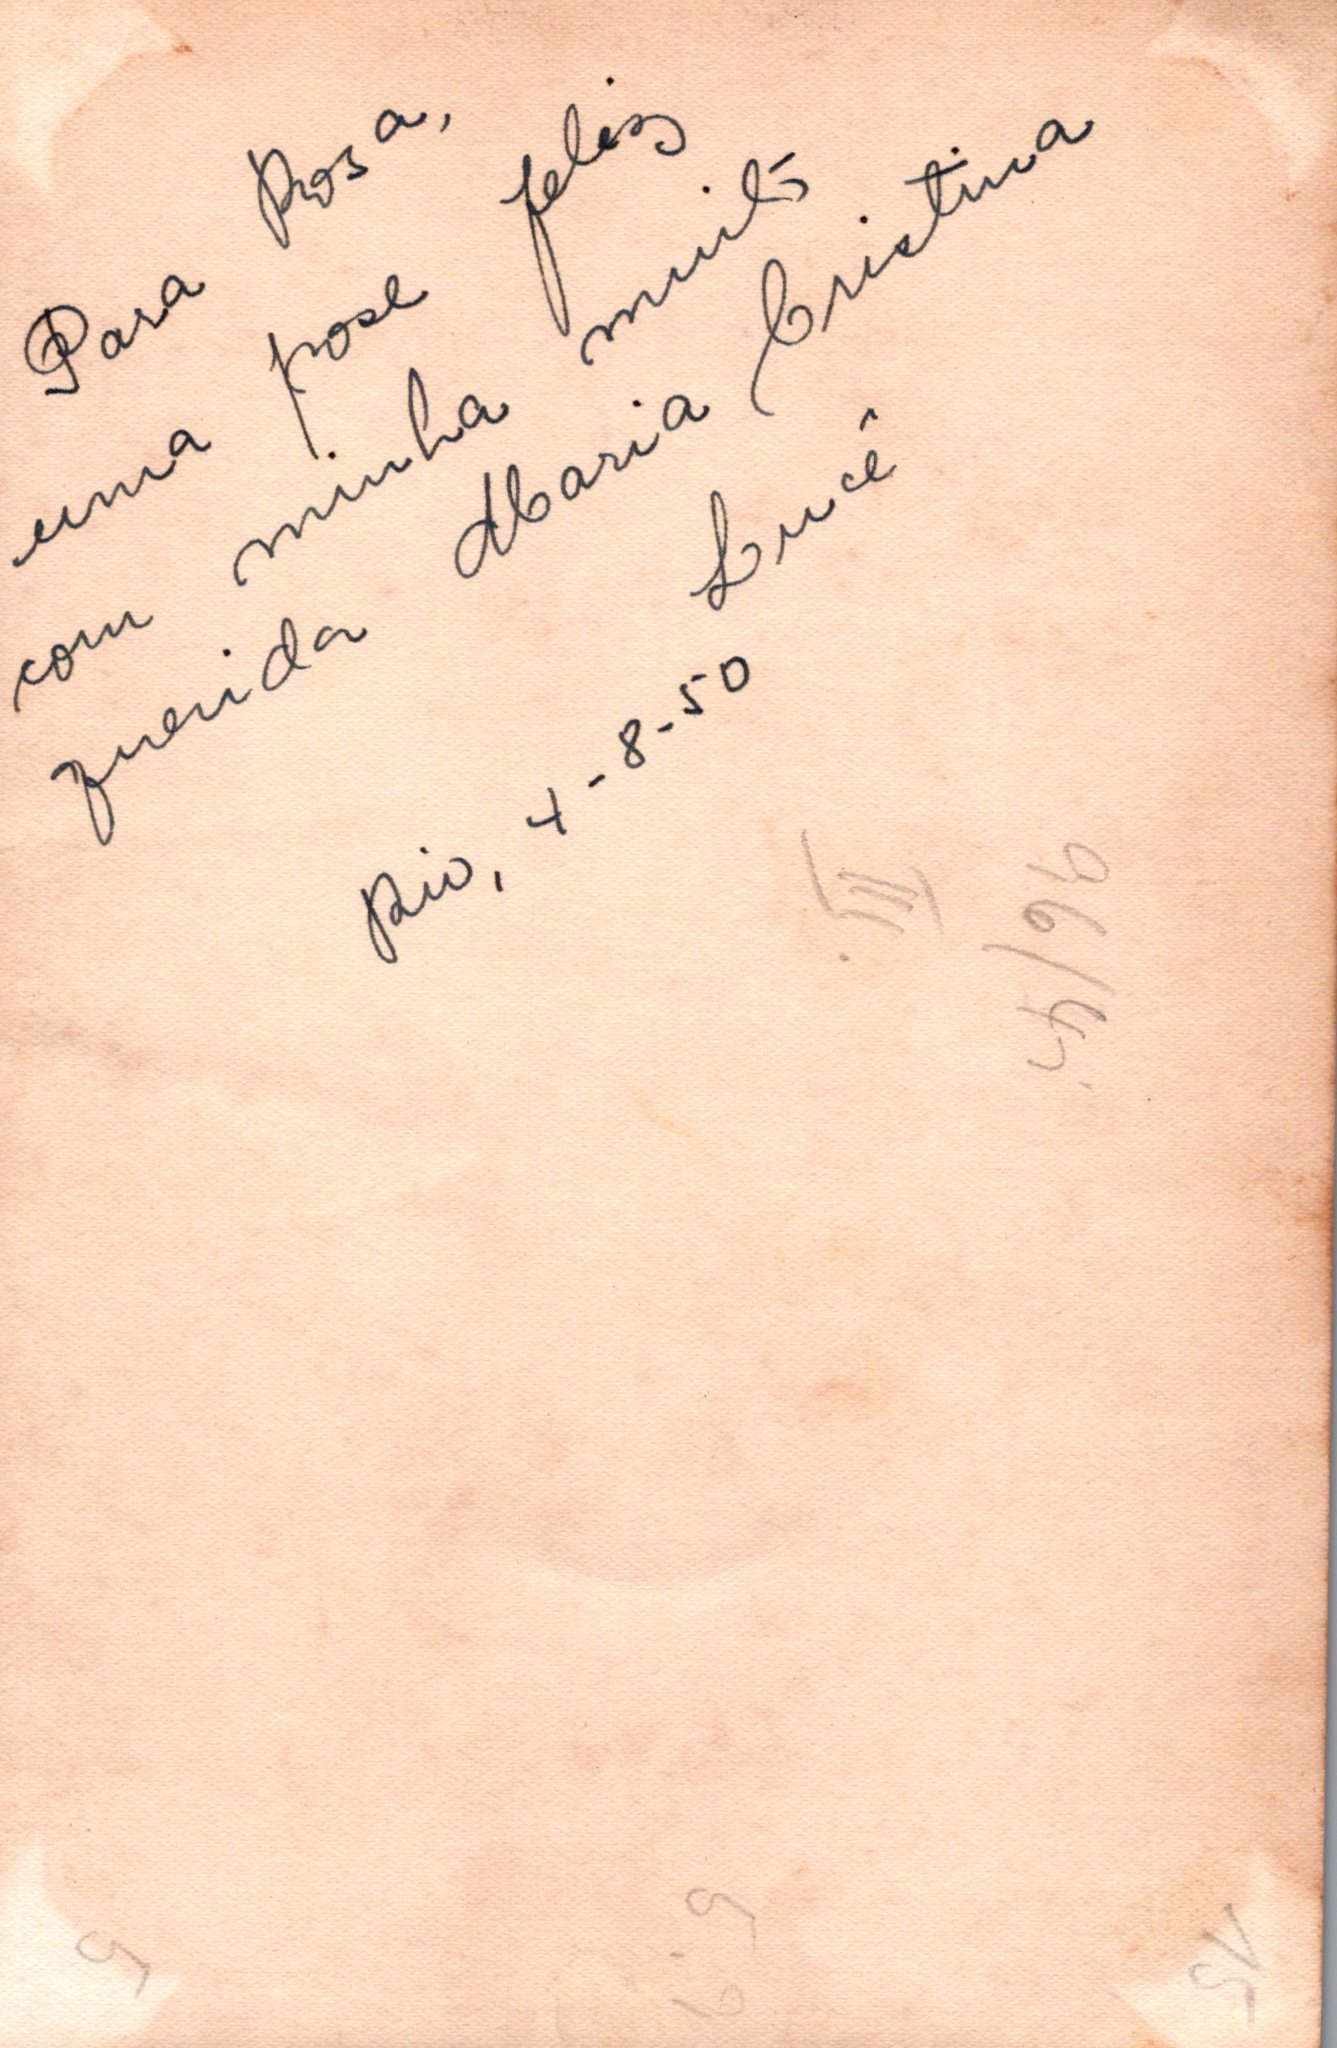 Para Rosa,
uma pose feliz
com minha muito
querida Maria Cristina
Lucê
Rio, 4-8-50
III.
96/4